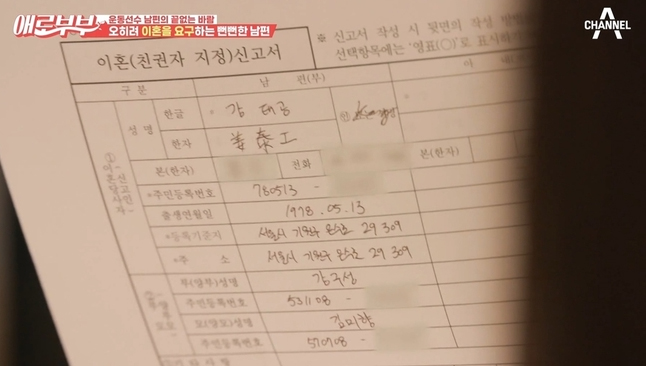 애로부부
운동선수 남편의 끝없는 바람
오히려 이혼을 요구하는 뻔뻔한 남편
CHANNEL
이혼(친권자 지정)신고서
※ 신고서 작성 시 뒷면의 작성 방법
선택항목에는 '영표(○)'로 표시하
구 분 남 편(부)
성명 한글 강 태공
한자 姜泰工
본(한자) 전화 본(한자)
주민등록번호 780513 -
출생연월일 1978.05.13
등록기준지 서울시 29 309
주 소 서울시 29 309
부(양부)성명 강구성
주민등록번호 531108 -
모(양모)성명 김미향
주민등록번호 570908 -